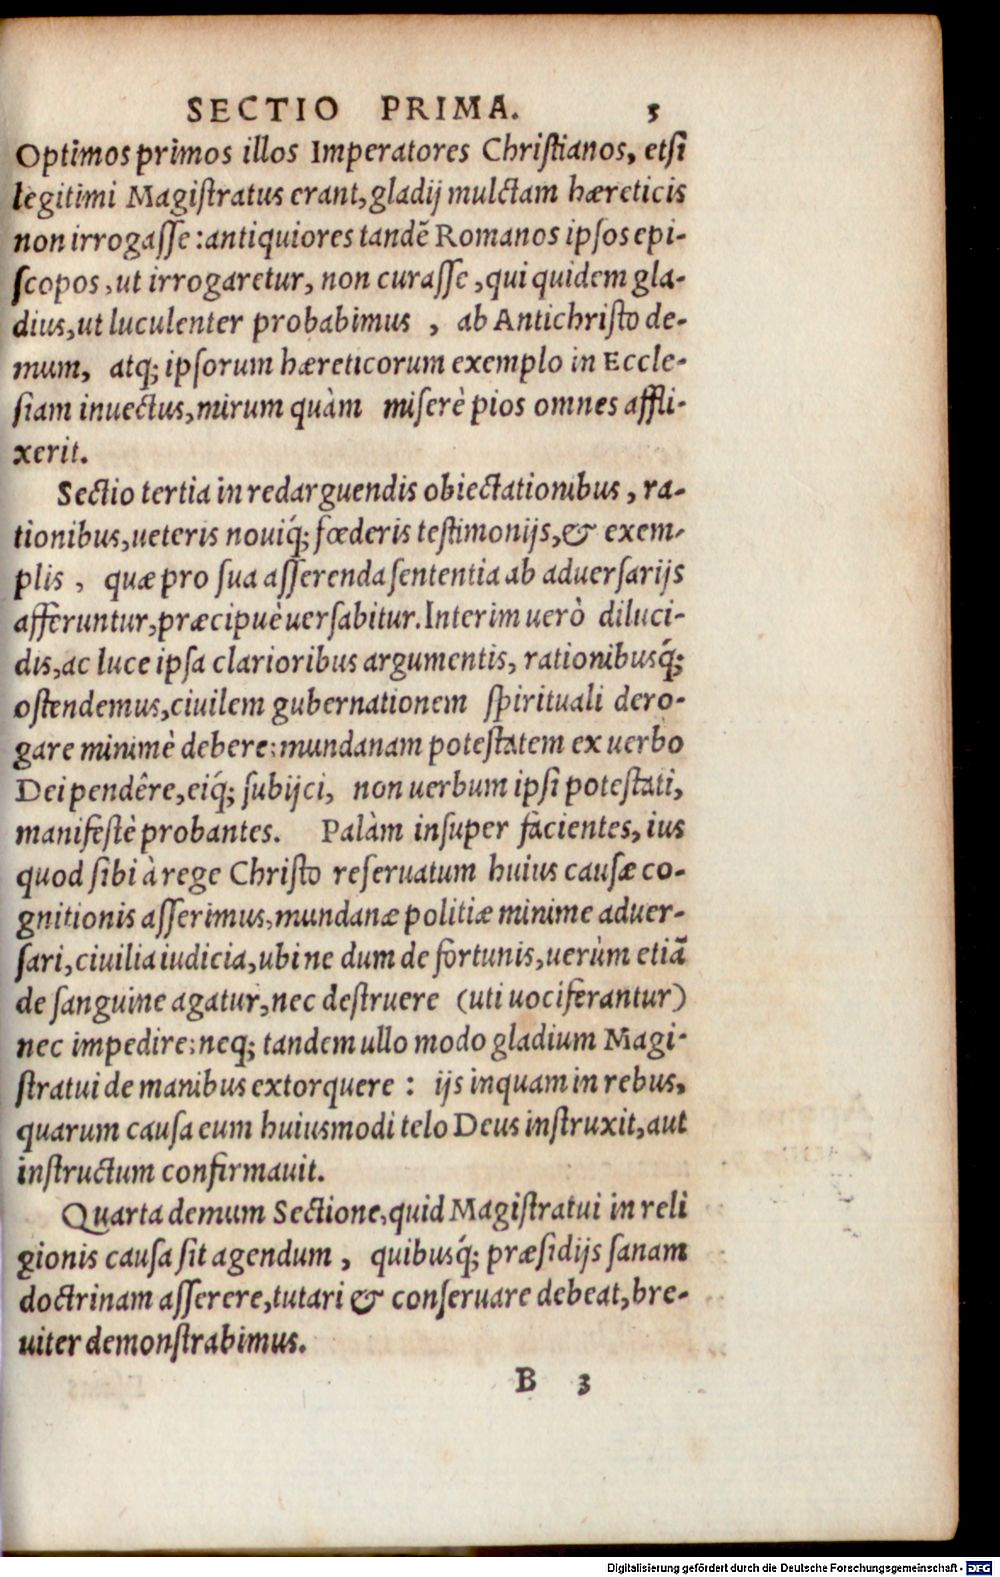 SECTIO PRIMA. 5
Optimos primos illos Imperatores Christianos, etsi
legitimi Magistratus erant, gladij mulctam hæreticis
non irrogasse: antiquiores tandẽ Romanos ipsos epi-
scopos, ut irrogaretur, non curasse, qui quidem gla-
dius, ut luculenter probabimus , ab Antichristo de-
mum, atq; ipsorum hæreticorum exemplo in Eccle-
siam inuectus, mirum quàm miserè pios omnes affli-
xerit.
Sectio tertia in redarguendis obiectationibus, ra-
tionibus, ueteris nouiq́; fœderis testimonijs, & exem-
plis , quæ pro sua asserenda sententia ab aduersarijs
afferuntur, præcipuè uersabitur. Interim uerò diluci-
dis, ac luce ipsa clarioribus argumentis, rationibusq́;
ostendemus, ciuilem gubernationem spirituali dero-
gare minimè debere: mundanam potestatem ex uerbo
Dei pendêre, eiq́; subijci, non uerbum ipsi potestati,
manifestè probantes. Palàm insuper facientes, ius
quod sibi à rege Christo reseruatum huius causæ co-
gnitionis asserimus, mundanæ politiæ minime aduer-
sari, ciuilia iudicia, ubi ne dum de fortunis, uerùm etiã
de sanguine agatur, nec destruere (uti uociferantur)
nec impedire: neq; tandem ullo modo gladium Magi-
stratui de manibus extorquere : ijs inquam in rebus,
quarum causa eum huiusmodi telo Deus instruxit, aut
instructum confirmauit.
Quarta demum Sectione, quid Magistratui in reli
gionis causa sit agendum , quibusq́; præsidijs sanam
doctrinam asserere, tutari & conseruare debeat, bre-
uiter demonstrabimus.
B 3
Digitalisierung gefördert durch die Deutsche Forschungsgemeinschaft - DFG